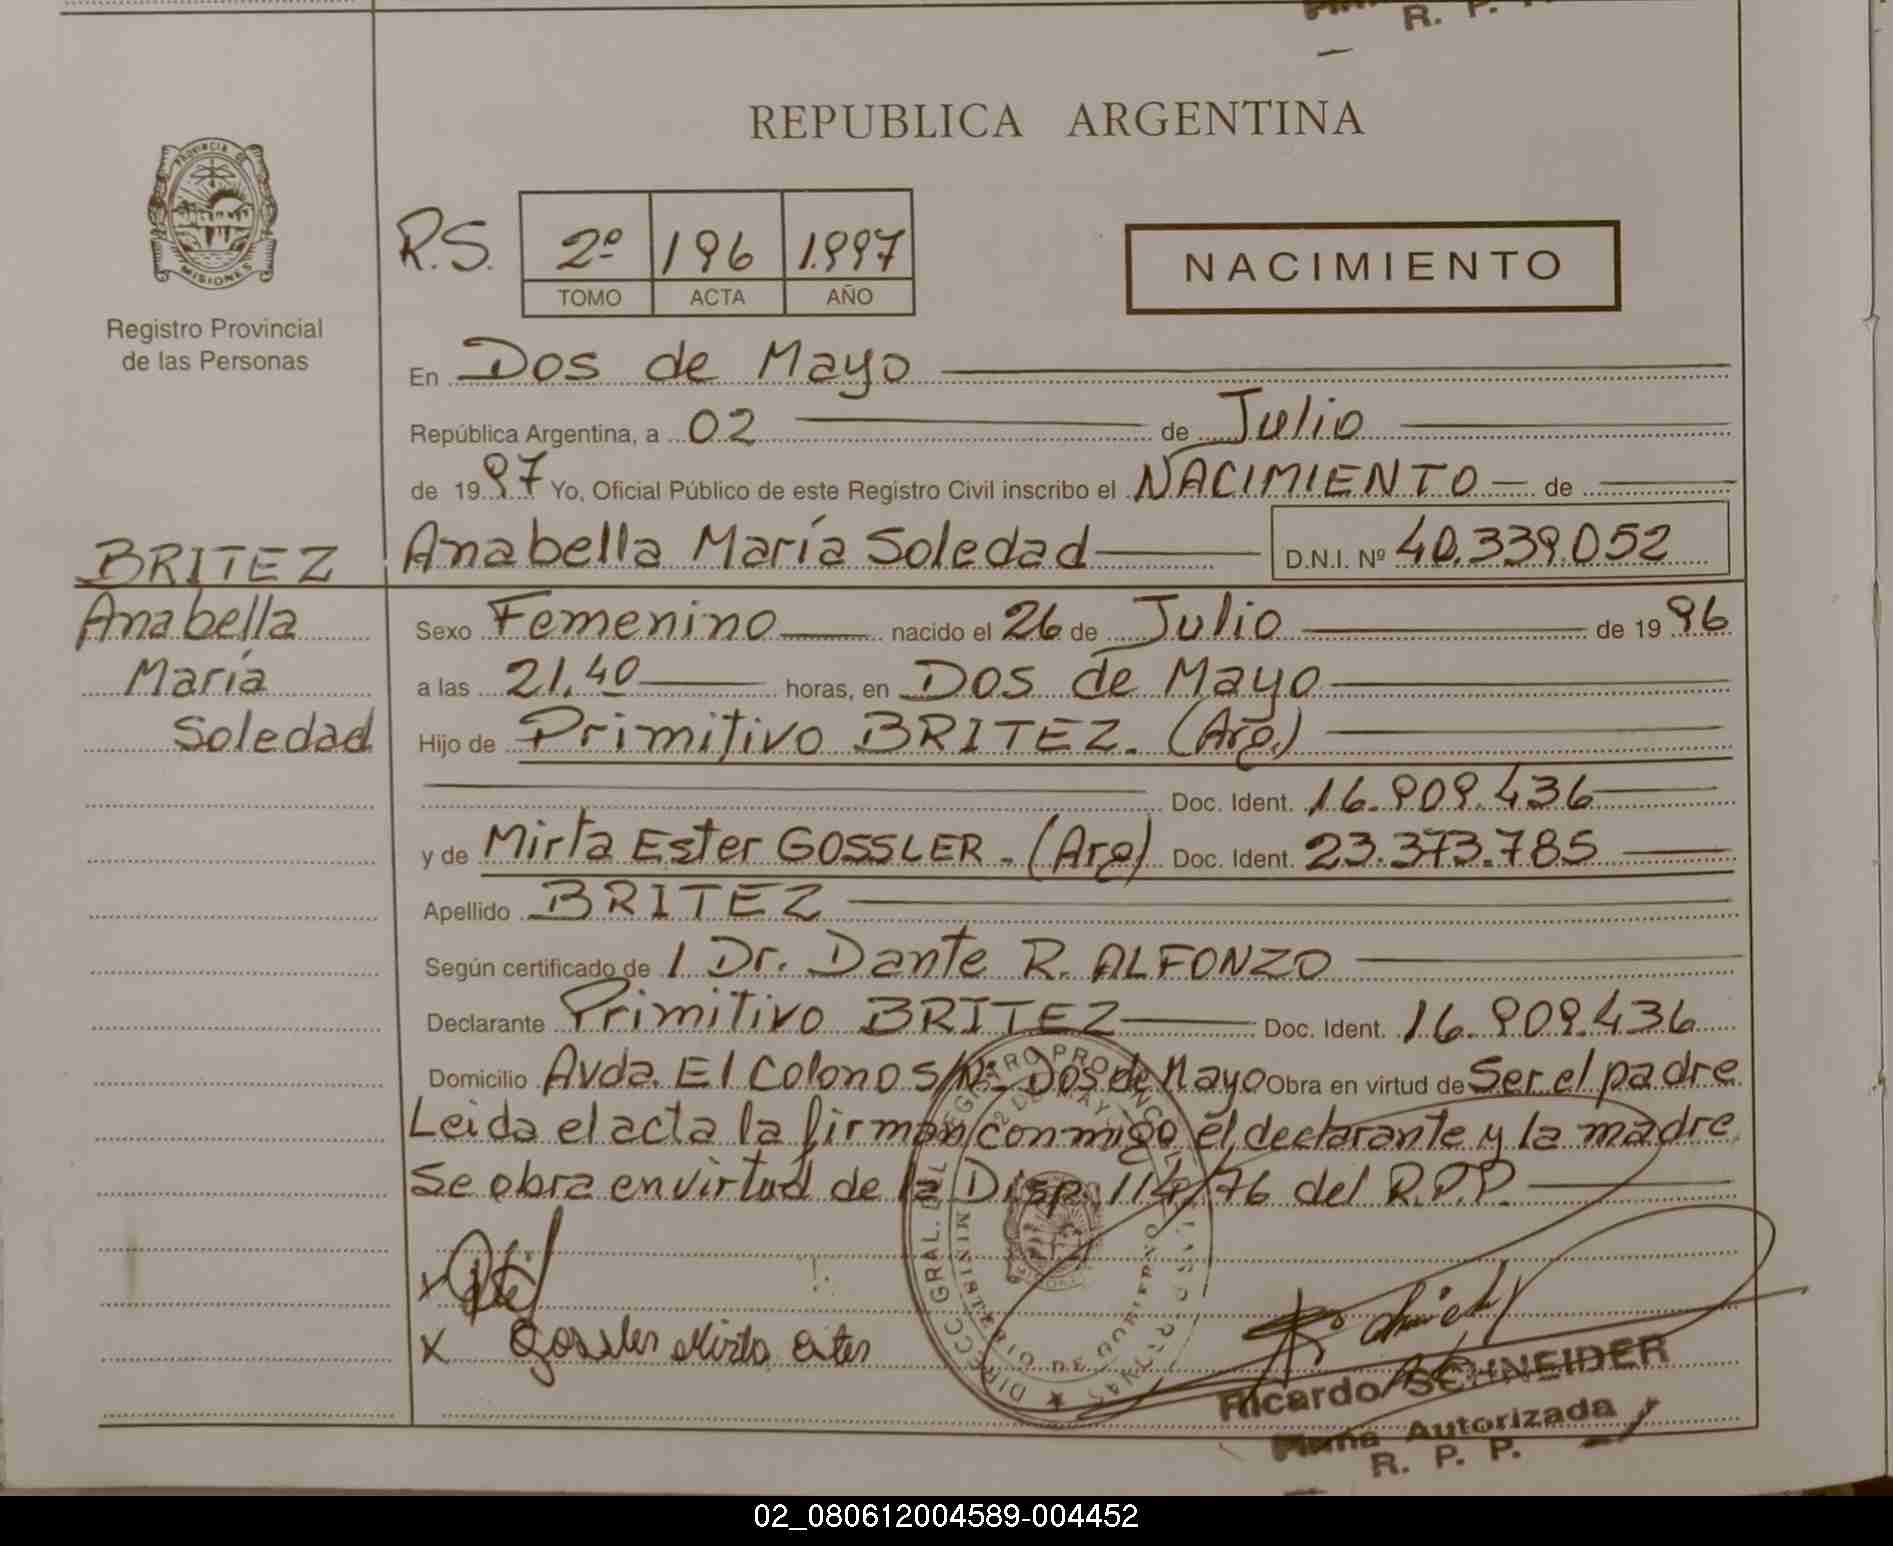 R. P.
REPUBLICA ARGENTINA
PROVINCIA DE
MISIONES
Registro Provincial
de las Personas
R.S. 2º 196 1.997
TOMO ACTA AÑO
NACIMIENTO
En Dos de Mayo
República Argentina, a 02 de Julio
de 1997 Yo, Oficial Público de este Registro Civil inscribo el NACIMIENTO de
Anabella María Soledad D.N.I. Nº 40.339.052
BRITEZ
Anabella
María
Soledad
Sexo Femenino nacido el 26 de Julio de 1996
a las 21,40 horas, en Dos de Mayo
Hijo de Primitivo BRITEZ. (Arg.)
Doc. Ident. 16.909.436
y de Mirta Ester GOSSLER. (Arg) Doc. Ident. 23.373.785
Apellido BRITEZ
Según certificado de / Dr. Dante R. ALFONZO
Declarante Primitivo BRITEZ Doc. Ident. 16.909.436
Domicilio Avda. El Colono S/Nº- Dos de Mayo Obra en virtud de Ser el padre
Leida el acta la firman conmigo el declarante y la madre
Se obra en virtud de la Disp. 114/76 del R.P.P.
X
X Gossler Mirta Ester
Ricardo SCHNEIDER
Firma Autorizada
R. P. P.
02_080612004589-004452